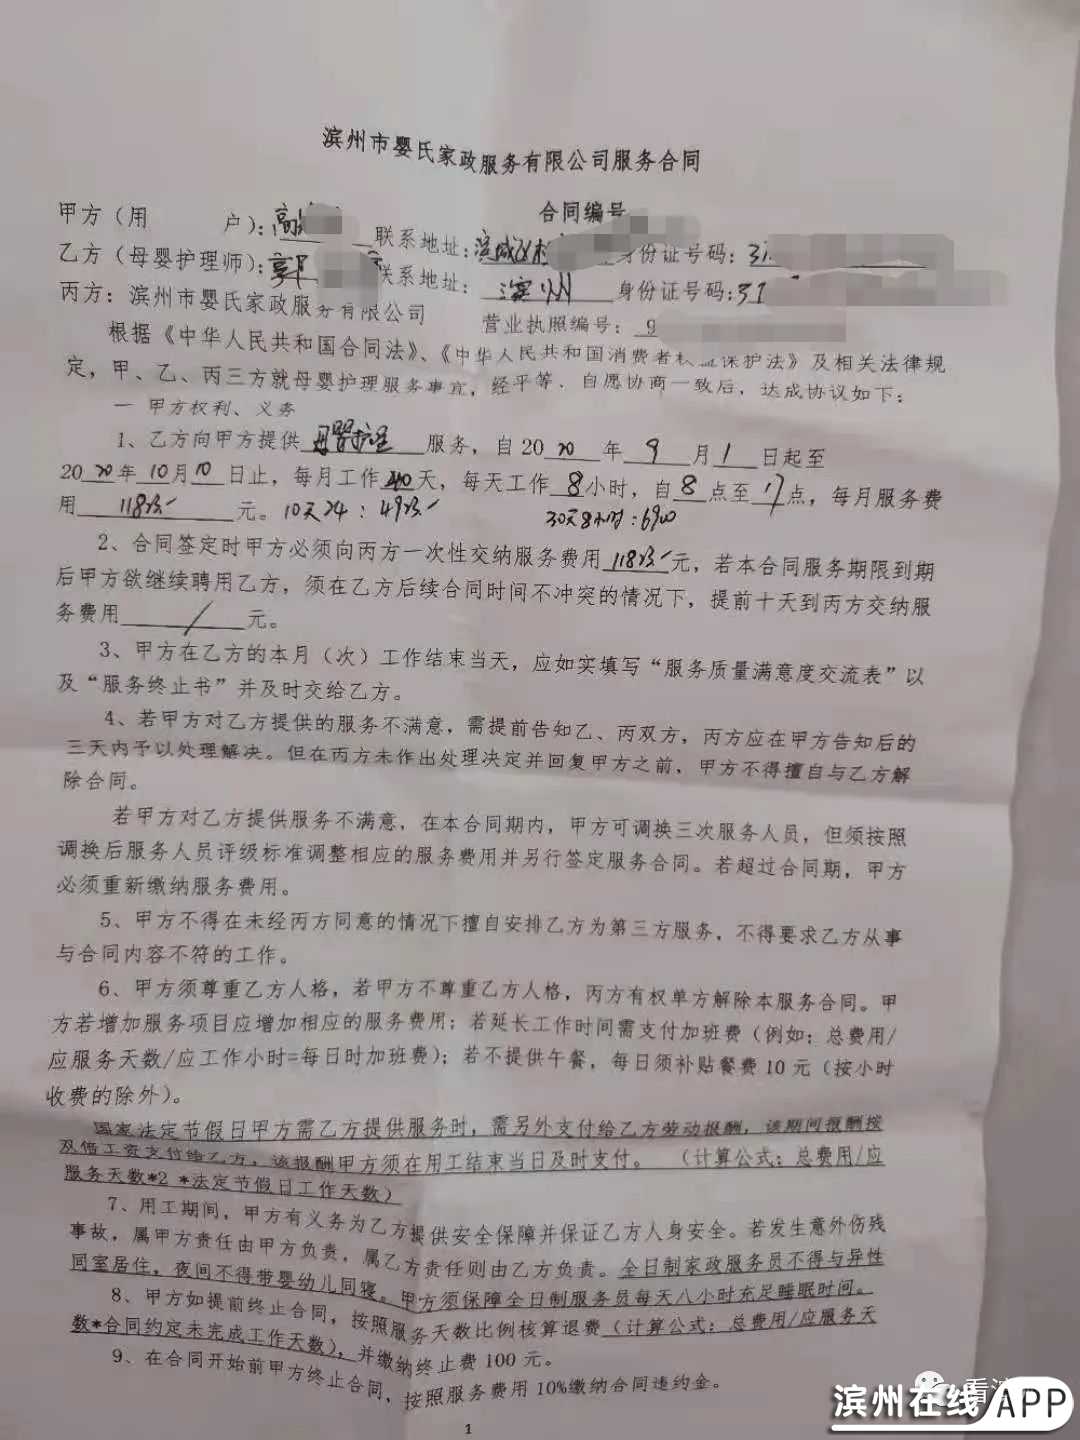 滨州市婴氏家政服务有限公司服务合同
合同编号
甲方（用 户）：高 联系地址：滨城区 身份证号码：37
乙方（母婴护理师）：郭 联系地址：滨州 身份证号码：37
丙方：滨州市婴氏家政服务有限公司 营业执照编号：9
根据《中华人民共和国合同法》、《中华人民共和国消费者权益保护法》及相关法律规
定，甲、乙、丙三方就母婴护理服务事宜，经平等、自愿协商一致后，达成协议如下：
一 甲方权利、义务
1、乙方向甲方提供母婴护理服务，自2020年9月1日起至
2020年10月10日止，每月工作40天，每天工作8小时，自8点至17点，每月服务费
用 元。10天24： 30天8小时：6900
2、合同签定时甲方必须向丙方一次性交纳服务费用 元，若本合同服务期限到期
后甲方欲继续聘用乙方，须在乙方后续合同时间不冲突的情况下，提前十天到丙方交纳服
务费用/元。
3、甲方在乙方的本月（次）工作结束当天，应如实填写“服务质量满意度交流表”以
及“服务终止书”并及时交给乙方。
4、若甲方对乙方提供的服务不满意，需提前告知乙、丙双方，丙方应在甲方告知后的
三天内予以处理解决。但在丙方未作出处理决定并回复甲方之前，甲方不得擅自与乙方解
除合同。
若甲方对乙方提供服务不满意，在本合同期内，甲方可调换三次服务人员，但须按照
调换后服务人员评级标准调整相应的服务费用并另行签定服务合同。若超过合同期，甲方
必须重新缴纳服务费用。
5、甲方不得在未经丙方同意的情况下擅自安排乙方为第三方服务，不得要求乙方从事
与合同内容不符的工作。
6、甲方须尊重乙方人格，若甲方不尊重乙方人格，丙方有权单方解除本服务合同。甲
方若增加服务项目应增加相应的服务费用；若延长工作时间需支付加班费（例如：总费用/
应服务天数/应工作小时=每日时加班费）；若不提供午餐，每日须补贴餐费10元（按小时
收费的除外）。
国家法定节假日甲方需乙方提供服务时，需另外支付给乙方劳动报酬，该期间报酬按
双倍工资支付给乙方，该报酬甲方须在用工结束当日及时支付。（计算公式：总费用/应
服务天数*2 *法定节假日工作天数）
7、用工期间，甲方有义务为乙方提供安全保障并保证乙方人身安全。若发生意外伤残
事故，属甲方责任由甲方负责，属乙方责任则由乙方负责。全日制家政服务员不得与异性
同室居住，夜间不得带婴幼儿同寝。甲方须保障全日制服务员每天八小时充足睡眠时间。
8、甲方如提前终止合同，按照服务天数比例核算退费（计算公式：总费用/应服务天
数*合同约定未完成工作天数），并缴纳终止费100元。
9、在合同开始前甲方终止合同，按照服务费用10%缴纳合同违约金。
1
看滨
滨州在线APP